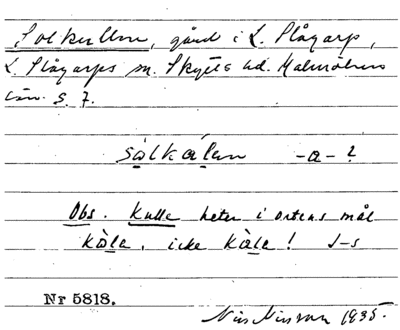 Solkullen, gård i L. Slågarp,
L. Slågarps sn. Skytts hd. Malmöhus
län. S. 7.
sålkålen -a- ?
Obs. Kulle heter i ortens mål
kåle, icke kåle! J-s
Nr 5818.
Nils Nilsson 1935.